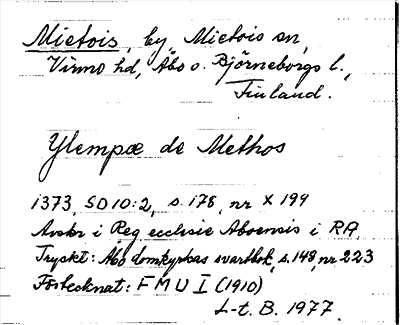 Mietois, by, Mietois sn,
Virmo hd, Åbo o. Björneborgs l.,
Finland.
Ylempæ de Methos
1373, SD 10:2, s. 178, nr X 199
Avskr i Reg ecclesie Aboensis i RA.
Tryckt: Åbo domkyrkas svartbok, s. 148, nr 223
Förtecknat: FMU I (1910)
L-t. B. 1977.